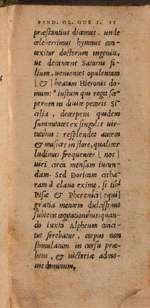 PIND. OL. ODE I. 11
præstantius dicamus. unde
celeberrimus hymnus con-
texitur doctorum ingeniis,
ut decantent Saturni fi-
lium, uenientes opulentam
& beatam Hieronis do-
mum: Iustum qui regit sce-
ptrum in divite pecoris Si-
cilia, decerpens quidem
summitates ex singulis uir-
tutibus: resplendet autem
& musices in flore, qualiter
ludimus frequenter, nos
uiri circa mensam iucun-
dam. Sed Doricam citha-
ram à clauo exime, si tibi
Pisæ & Pherenici equi
gratia mentem dulcissimis
subiecit cogitationibus: quan-
do iuxta Alpheum conci-
tus ferebatur, corpus non
stimulatum in cursu præ-
bens, & uictoriæ admo-
uit dominum,